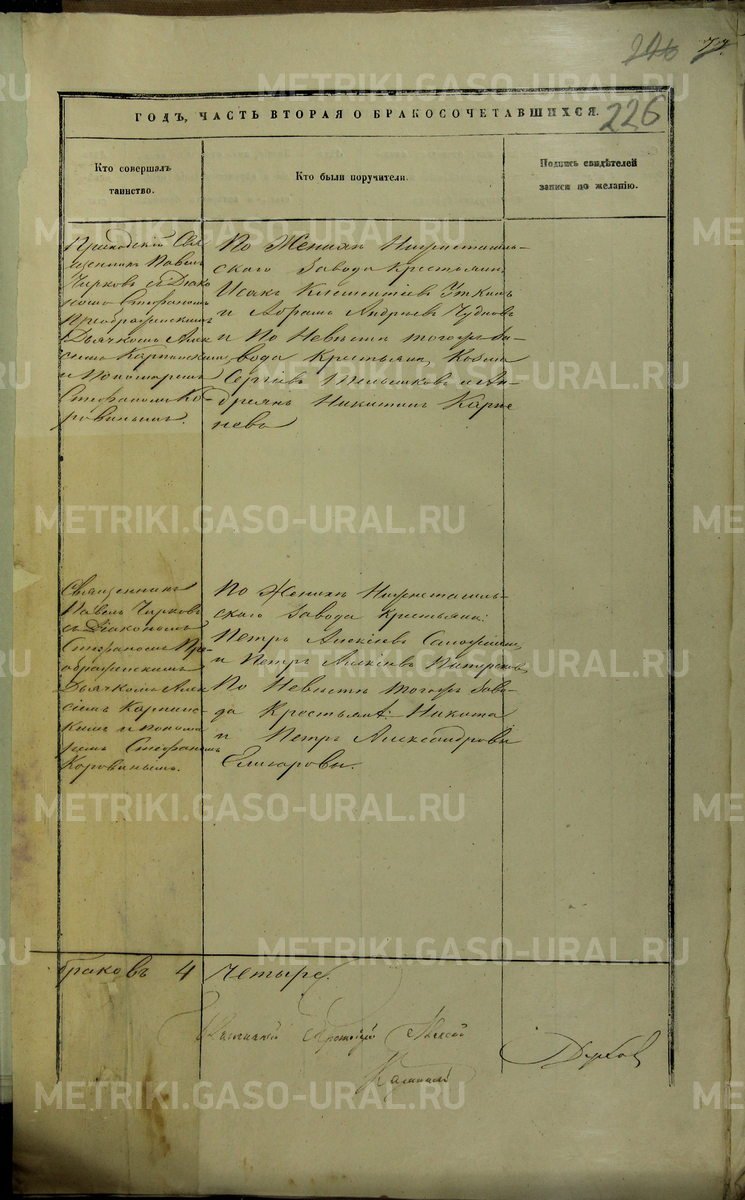 226
77.
226
ГОДЪ, ЧАСТЬ ВТОРАЯ О БРАКОСОЧЕТАВШИХСЯ.
Кто совершалъ
таинство.
Кто были поручители.
Подпись свидѣтелей
записи по желанію.
Приходскій Свя
щенникъ Павелъ
Чирковъ съ Діако
номъ Стефаномъ
Преображенскимъ
Дьячкомъ Алек
сіемъ Карпинскимъ
и Пономаремъ
Стефаномъ Ко
ровинымъ.
По Женихѣ Нижнетагиль-
скаго Завода крестьяни:
Исакъ Уткинъ
и Абрамъ Андріевъ Чудновъ
и По Невѣстѣ тогожъ За-
вода Крестьяна, Козма
Сергіевъ и Ан-
дреянъ Никитинъ
Священникъ
Павелъ Чирковъ
съ Діакономъ
Стефаномъ Пре-
ображенскимъ
Дьячкомъ Алек
сіемъ Карпинс-
кимъ и понома
ремъ Стефаномъ
Коровинымъ.
По Женихѣ Нижнетагиль-
скаго Завода крестьяни:
Петръ Алексіевъ
и Петръ Алексіевъ
По Невѣстѣ тогожъ Заво-
да Крестьяна: Никита
и Петръ Александровы
Елизаровы.
браковъ 4 Четыре.
METRIKI.GASO-URAL.RU